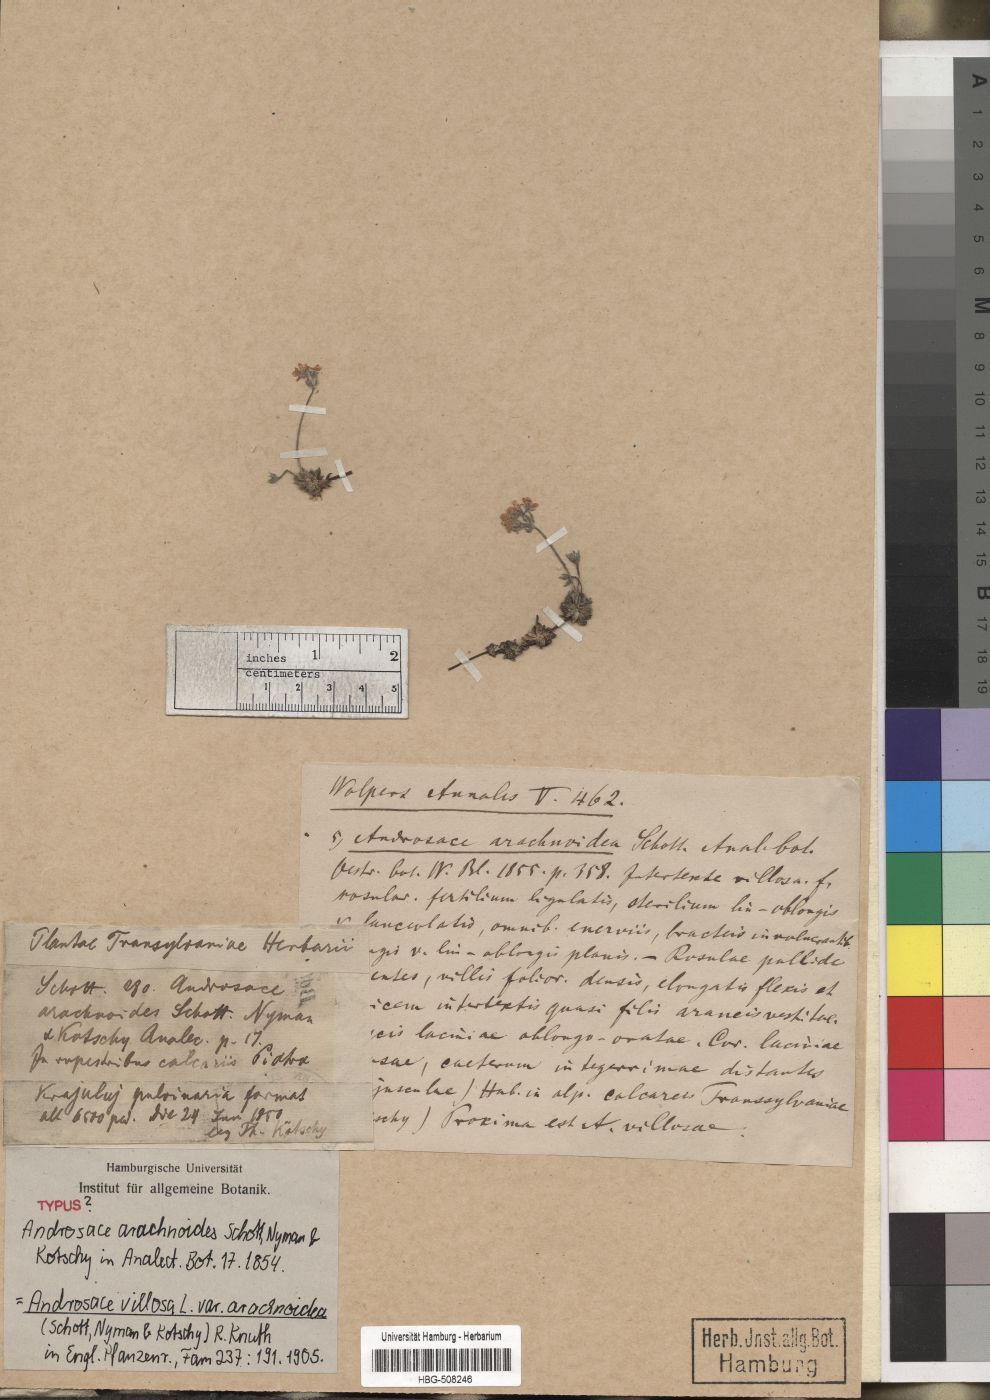 inches 1 2
centimeters
1 2 3 4 5
Walpers Annales V. 462.
5) Androsace arachnoidea Schott. Anal. bot.
Oestr. bot. W. Bl. 1855. p. 358. Intertexte villosa. f.
rosular. fertilium ligulatis, sterilium lin-oblongis
v. lanceolatis, omnib. enerviis, bracteis involucrantib.
ngis v. lin-oblongis planis. — Rosulae pallide
entes, villis folior. densis, elongatis flexis et
icem intertextis quasi filis araneis vestitae.
cis laciniae oblongo-ovatae. Cor. laciniae
sae, caeterum integerrimae distantes
jusculae) Hab. in alp. calcareis Transsylvaniae
schy) Proxima est A. villosae.
Plantae Transylvaniae Herbarii
Schott. 280. Androsace
arachnoides Schott. Nyman
& Kotschy Analec. p. 17.
In rupestribus calcariis Piatra
Krajuluj pulvinaria format
alt 6500 ped. Die 24 Jun 1850
leg Th. Kotschy
Hamburgische Universität
Institut für allgemeine Botanik.
TYPUS?
Androsace arachnoides Schott, Nyman &
Kotschy in Analect. Bot. 17. 1854.
= Androsace villosa L. var. arachnoidea
(Schott, Nyman & Kotschy) R. Knuth
in Engl. Pflanzenr., Fam 237: 191. 1905.
Universität Hamburg - Herbarium
HBG-508246
Herb. Inst. allg. Bot.
Hamburg
A
1
2
3
4
5
6
M
8
9
10
11
12
13
14
15
B
17
18
19